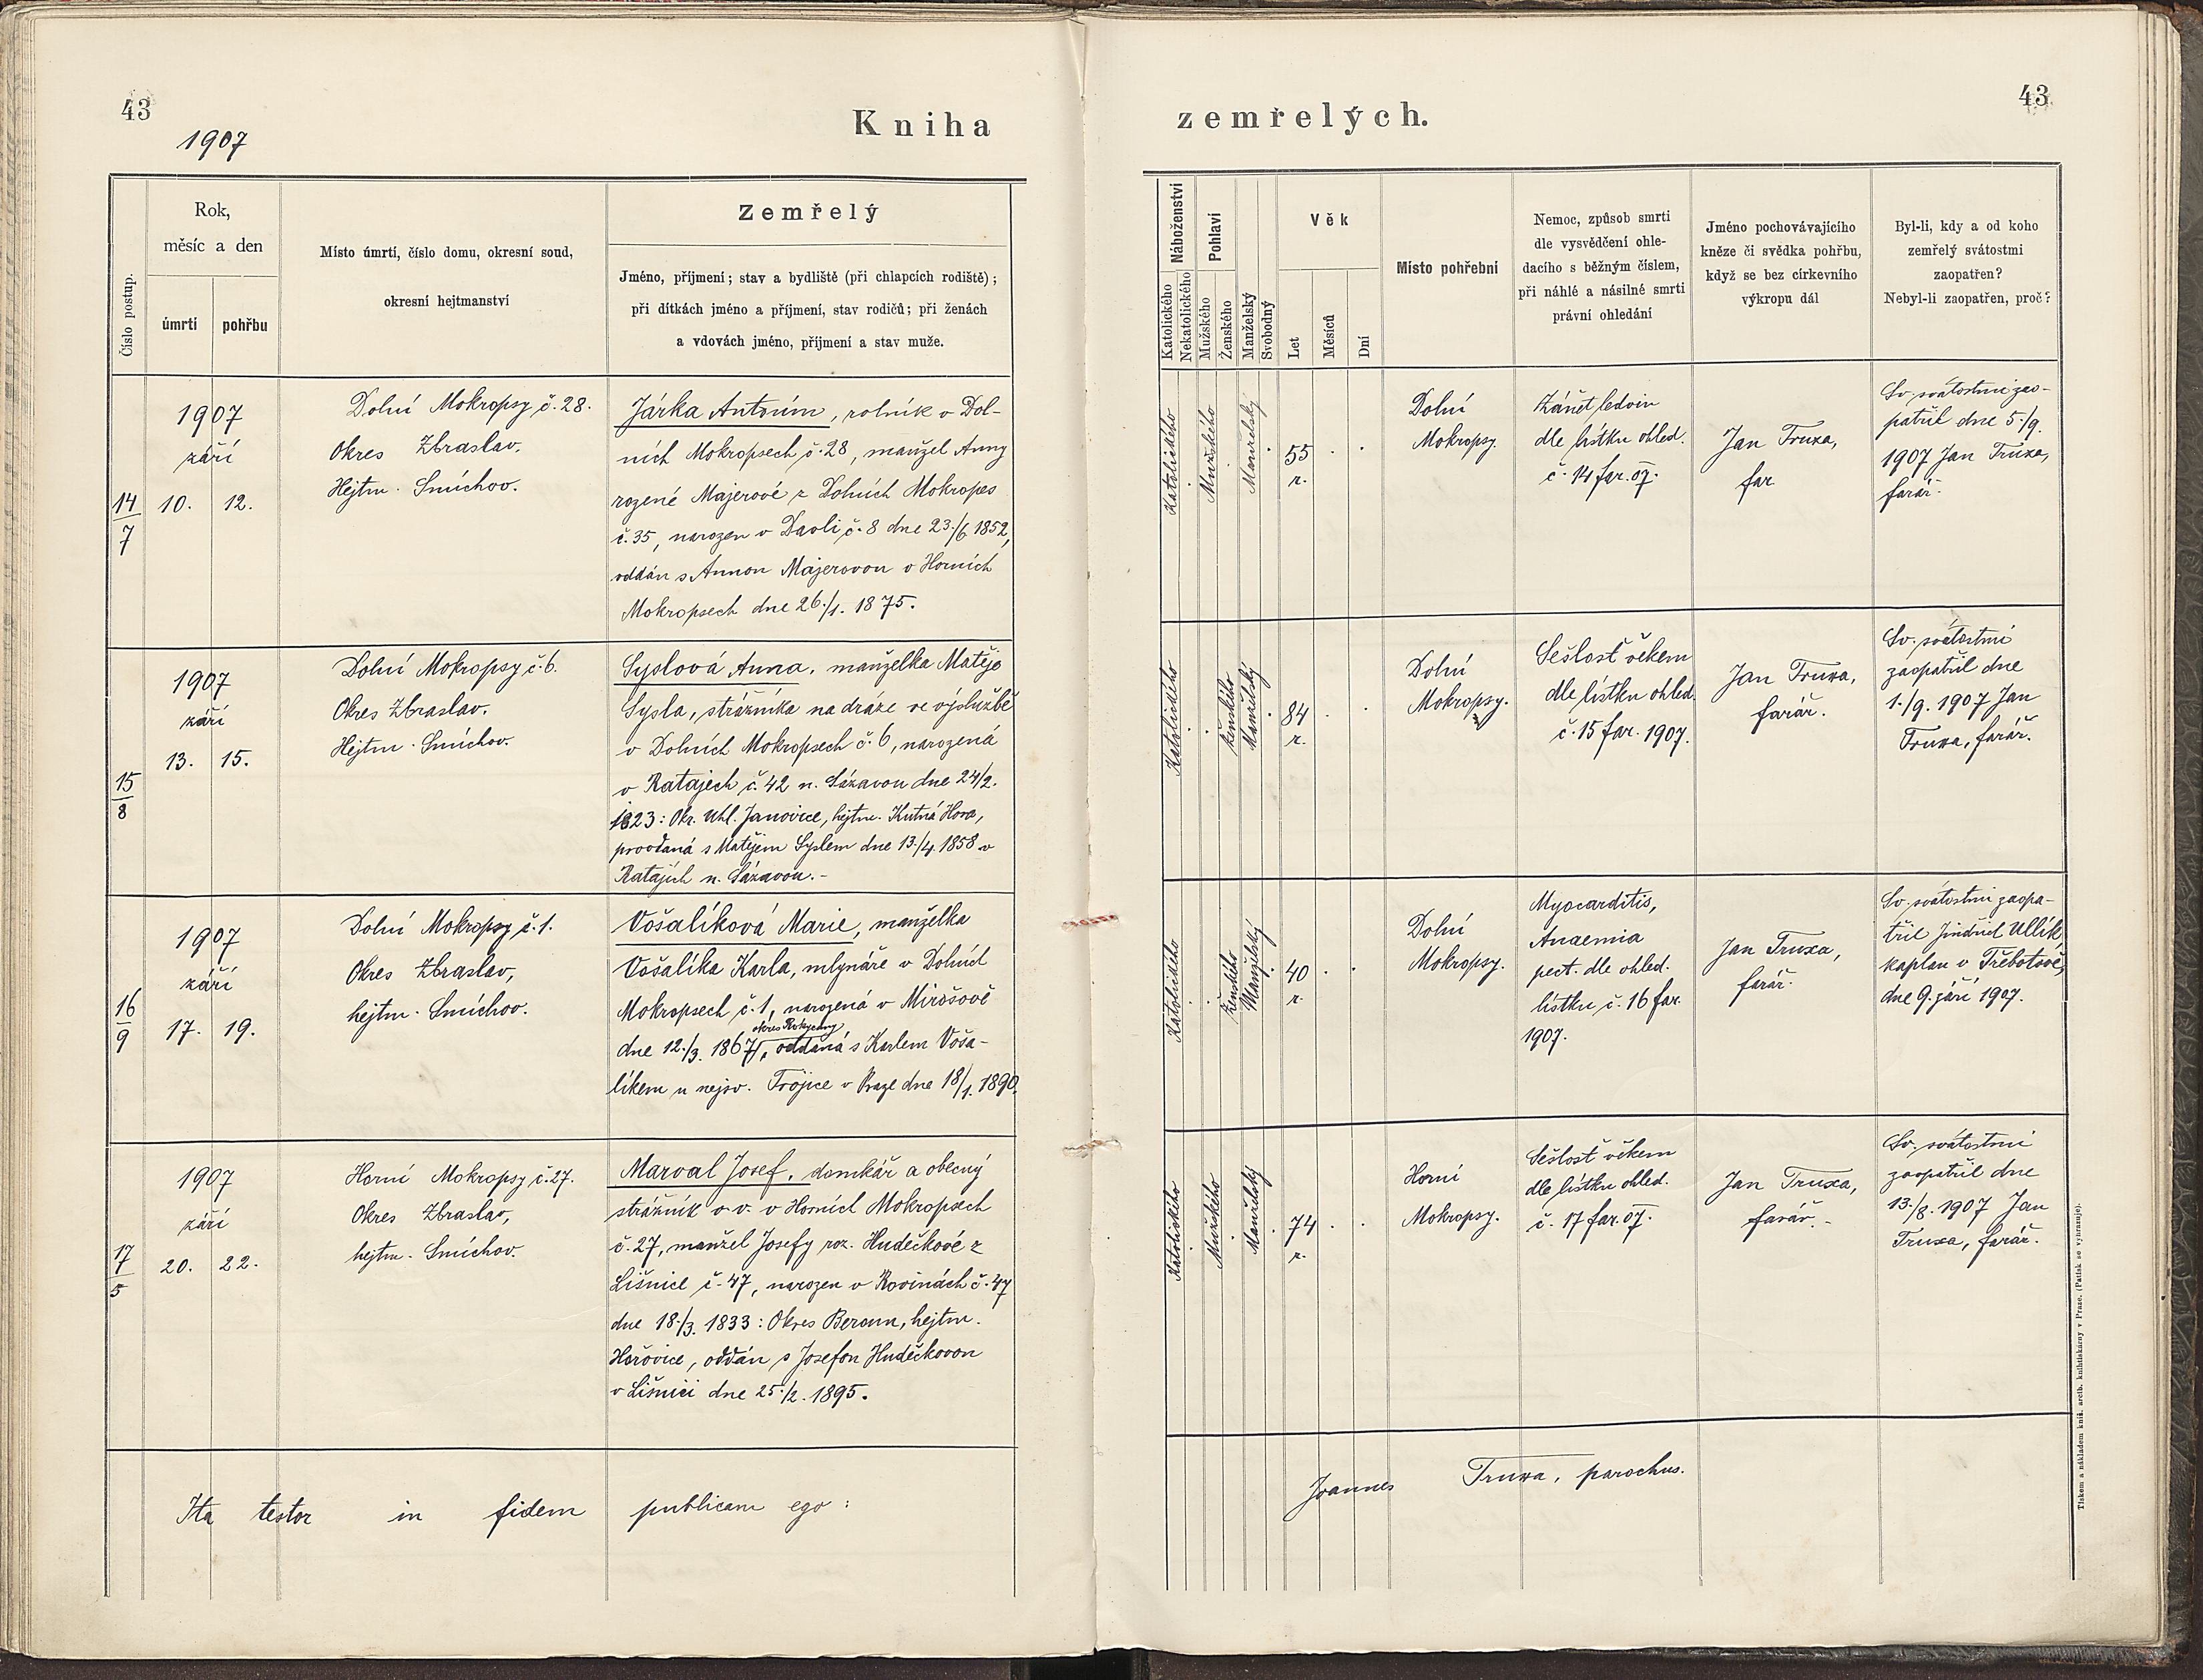 43
1907
Kniha
Číslo postup.
Rok,
měsíc a den
úmrtí
pohřbu
Místo úmrtí, číslo domu, okresní soud,
okresní hejtmanství
Zemřelý
Jméno, příjmení; stav a bydliště (při chlapcích rodiště);
při dítkách jméno a příjmení, stav rodičů; při ženách
a vdovách jméno, příjmení a stav muže.
14/7
1907
září
10. 12.
Dolní Mokropsy č. 28.
Okres Zbraslav.
Hejtm. Smíchov.
Járka Antonín, rolník v Dol-
ních Mokropsech č. 28, manžel Anny
rozené Majerové z Dolních Mokropes
č. 35, narozen v Davli č. 8 dne 23./6. 1852,
oddán s Annou Majerovou v Horních
Mokropsech dne 26./1. 1875.
15/8
1907
září
13. 15.
Dolní Mokropsy č. 6.
Okres Zbraslav.
Hejtm. Smíchov.
Syslová Anna, manželka Matěje
Sysla, strážníka na dráze ve výslužbě
v Dolních Mokropsech č. 6, narozená
v Ratajech č. 42 n. Sázavou dne 24/2.
1823: Okr. Uhl. Janovice, hejtm. Kutná Hora,
provdaná s Matějem Syslem dne 13./4. 1858 v
Ratajích n. Sázavou.-
16/9
1907
září
17. 19.
Dolní Mokropsy č. 1.
Okres Zbraslav,
hejtm. Smíchov.
Vošalíková Marie, manželka
Vošalíka Karla, mlynáře v Dolních
Mokropsech č. 1, narozená v Mirošově
okres Rokycany
dne 12./3. 1867, oddaná s Karlem Voša-
líkem u nejsv. Trojice v Praze dne 18/1. 1890.
17/5
1907
září
20. 22.
Horní Mokropsy č. 27.
Okres Zbraslav,
hejtm. Smíchov.
Marval Josef, domkář a obecný
strážník v. v. v Horních Mokropsech
č. 27, manžel Josefy roz. Hudečkové z
Lišnice č. 47, narozen v Rovinách č. 47
dne 18./3. 1833: Okres Beroun, hejtm.
Hořovice, oddán s Josefou Hudečkovou
v Lišnici dne 25./2. 1895.
Ita testor in fidem publicam ego:
zemřelých.
43
Náboženství
Katolického
Nekatolického
Pohlaví
Mužského
Ženského
Manželský
Svobodný
Věk
Let
Měsíců
Dní
Místo pohřební
Nemoc, způsob smrti
dle vysvědčení ohle-
dacího s běžným číslem,
při náhlé a násilné smrti
právní ohledání
Jméno pochovávajícího
kněze či svědka pohřbu,
když se bez církevního
výkropu dál
Byl-li, kdy a od koho
zemřelý svátostmi
zaopatřen?
Nebyl-li zaopatřen, proč?
Katolického
Mužského
Manželský
55
r.
Dolní
Mokropsy.
Zánět ledvin
dle lístku ohled.
č. 14 far. 07.
Jan Truxa,
far.
Sv. svátostmi zao-
patřil dne 5./9.
1907 Jan Truxa,
farář.
Katolického
Ženského
Manželský
84
r.
Dolní
Mokropsy.
Sešlosť věkem
dle lístku ohled.
č. 15 far. 1907.
Jan Truxa,
farář.
Sv. svátostmi
zaopatřil dne
1./9. 1907 Jan
Truxa, farář.
Katolického
Ženského
Manželský
40
r.
Dolní
Mokropsy.
Myocarditis,
Anaemia
pect. dle ohled.
lístku č. 16 far.
1907.
Jan Truxa,
farář.
Sv. svátostmi zaopa-
třil Jindřich Ullík
kaplan v Třebotově,
dne 9. září 1907.
Katolického
Mužského
Manželský
74
r.
Horní
Mokropsy.
Sešlosť věkem
dle lístku ohled.
č. 17 far. 07.
Jan Truxa,
farář.-
Sv. svátostmi
zaopatřil dne
13./8. 1907 Jan
Truxa, farář.
Joannes Truxa, parochus.
Tiskem a nákladem kníž. arcib. knihtiskárny v Praze. (Patisk se vyhrazuje).